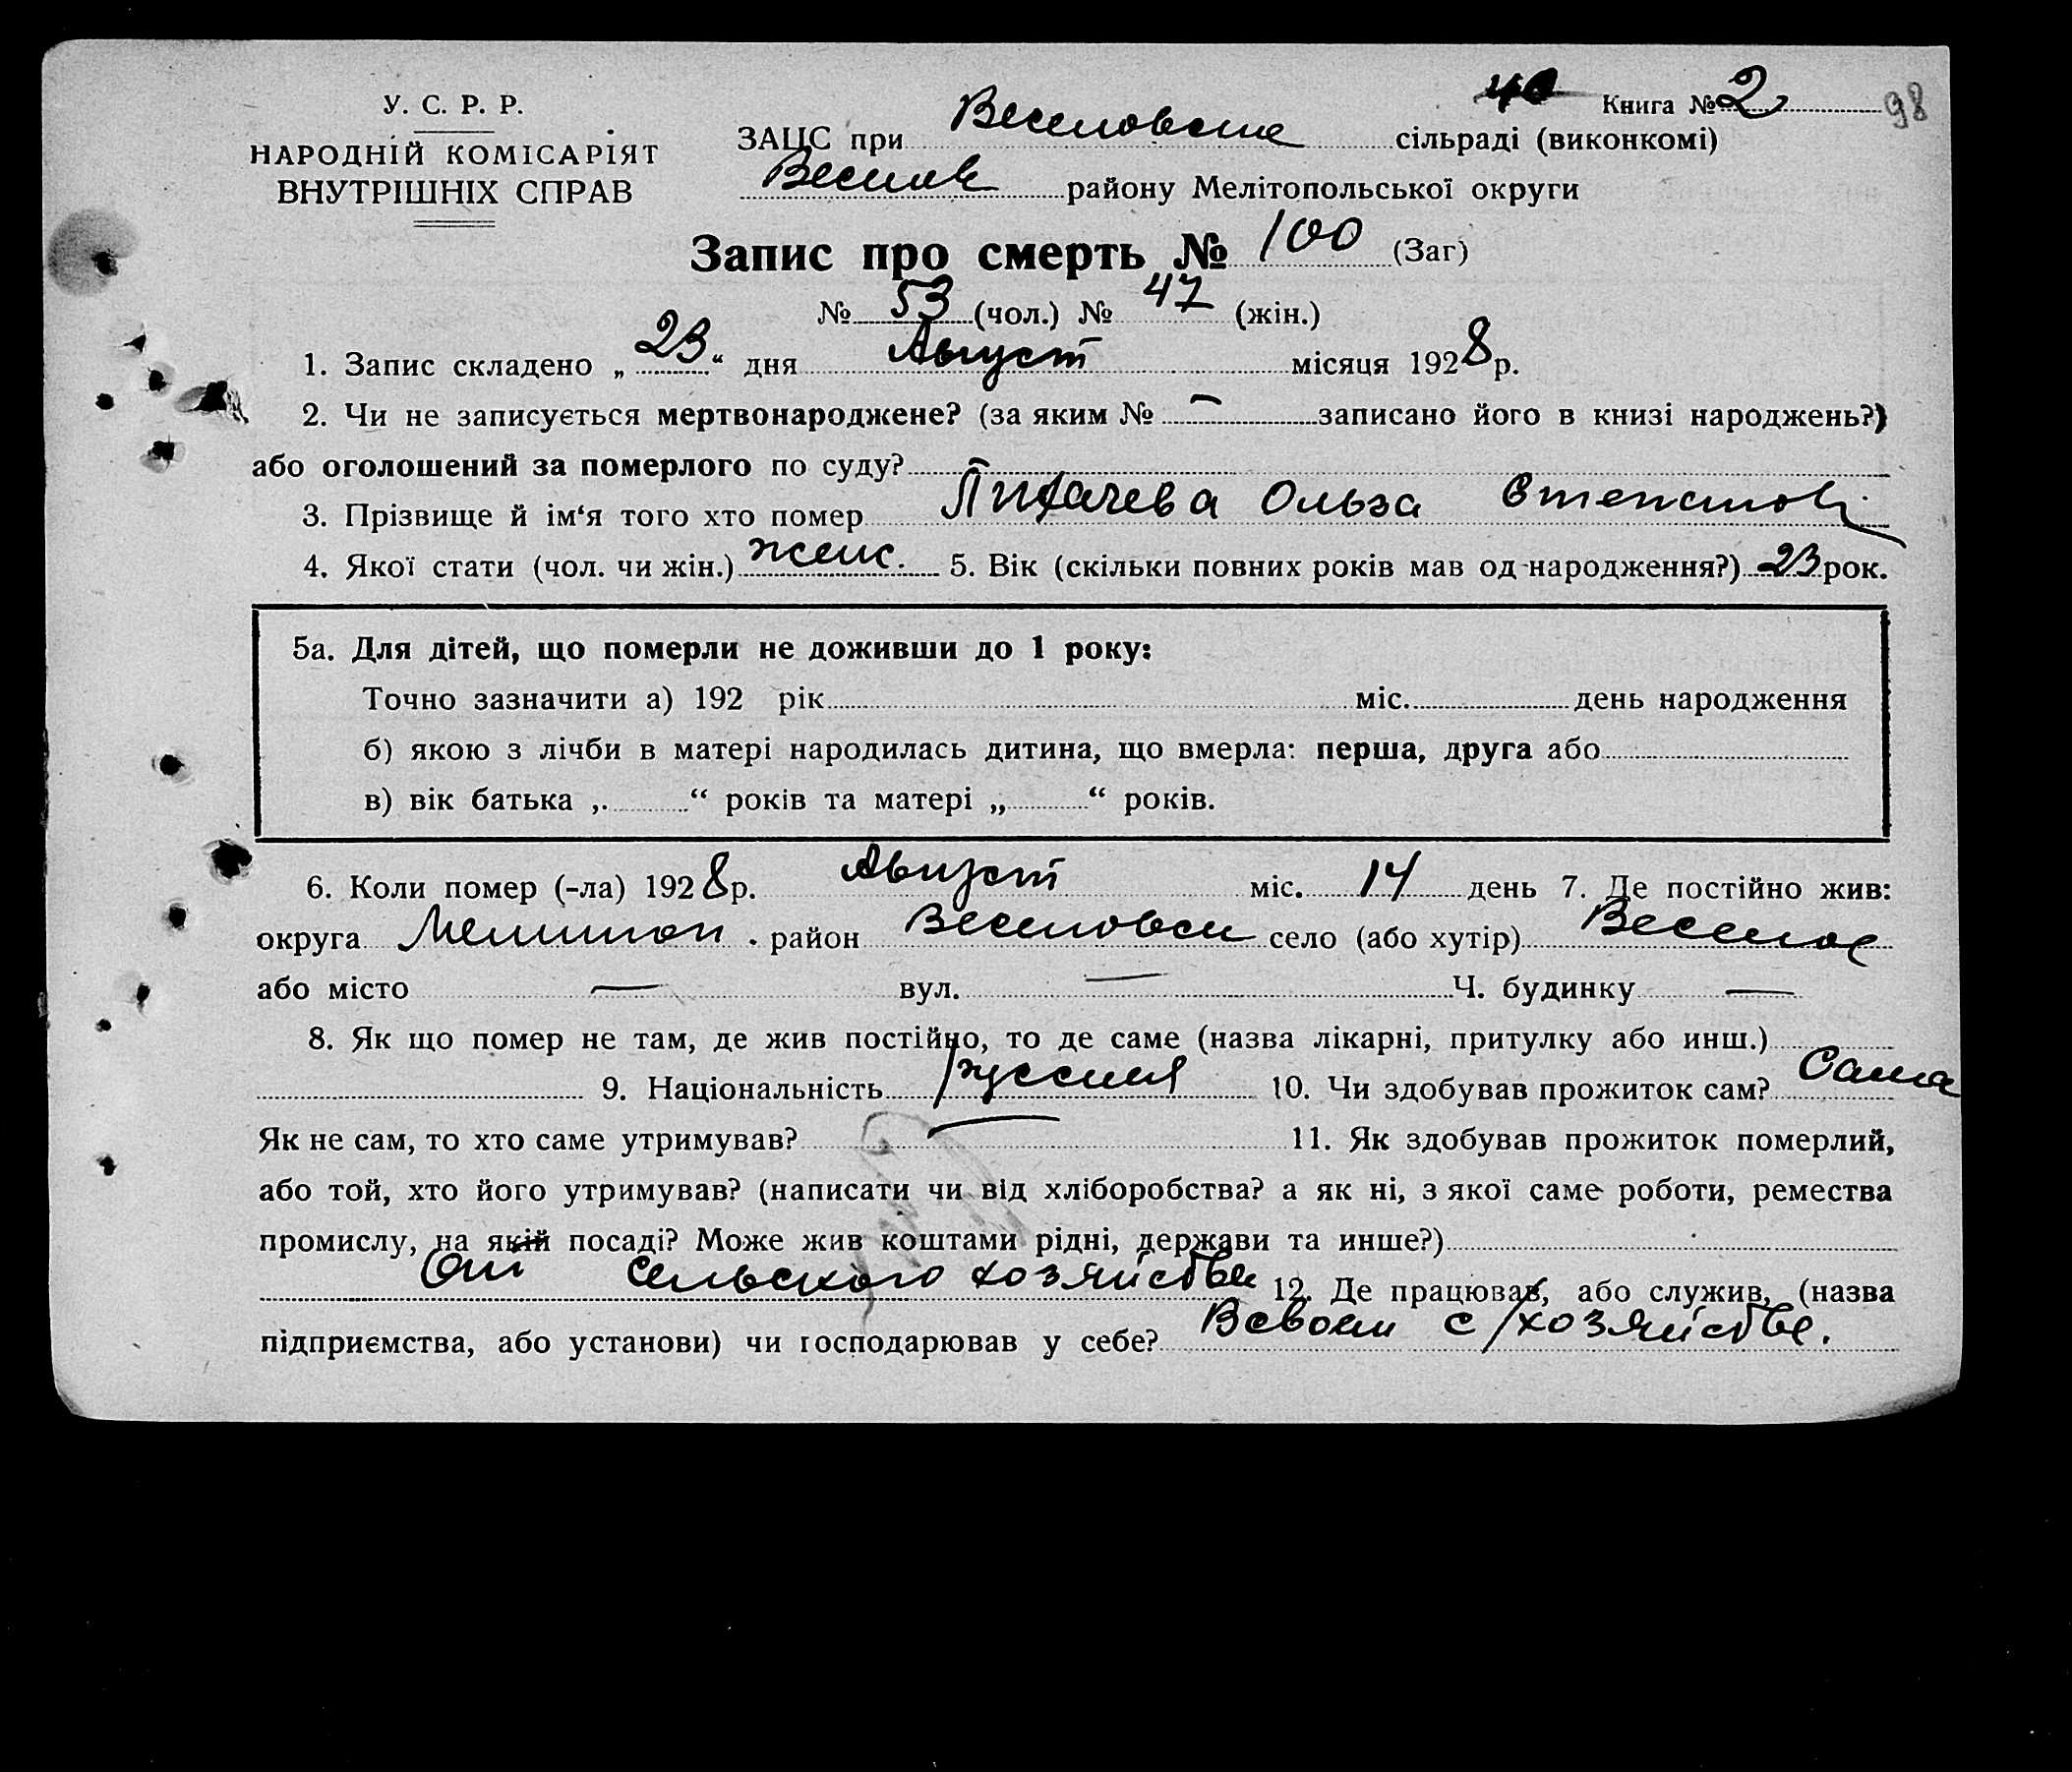 У. С. Р. Р.
НАРОДНІЙ КОМІСАРІЯТ
ВНУТРІШНІХ СПРАВ
40 Книга № 2 98
ЗАЦС при Веселовском сільраді (виконкомі)
Веселов району Мелітопольської округи
Запис про смерть № 100 (Заг)
№ 53 (чол.) № 47 (жін.)
1. Запис складено „ 23 “ дня Август місяця 1928 р.
2. Чи не записується мертвонароджене? (за яким № — записано його в книзі народжень?)
або оголошений за померлого по суду? —
3. Прізвище й ім‘я того хто помер Лихачева Ольга Степанов.
4. Якої стати (чол. чи жін.) женс. 5. Вік (скільки повних років мав од народження?) 23 рок.
5а. Для дітей, що померли не доживши до 1 року:
Точно зазначити а) 192 рік міс. день народження
б) якою з лічби в матері народилась дитина, що вмерла: перша, друга або
в) вік батька „ “ років та матері „ “ років.
6. Коли помер (-ла) 1928 р. Август міс. 14 день 7. Де постійно жив:
округа Мелитоп. район Веселовск село (або хутір) Веселое
або місто — вул. — Ч. будинку —
8. Як що помер не там, де жив постійно, то де саме (назва лікарні, притулку або инш.)
9. Національність русская 10. Чи здобував прожиток сам? Сама
Як не сам, то хто саме утримував? — 11. Як здобував прожиток померлий,
або той, хто його утримував? (написати чи від хліборобства? а як ні, з якої саме роботи, ремества
промислу, на якій посаді? Може жив коштами рідні, держави та инше?)
От сельского хозяйства 12. Де працював, або служив, (назва
підприємства, або установи) чи господарював у себе? В своем с/хозяйстве.